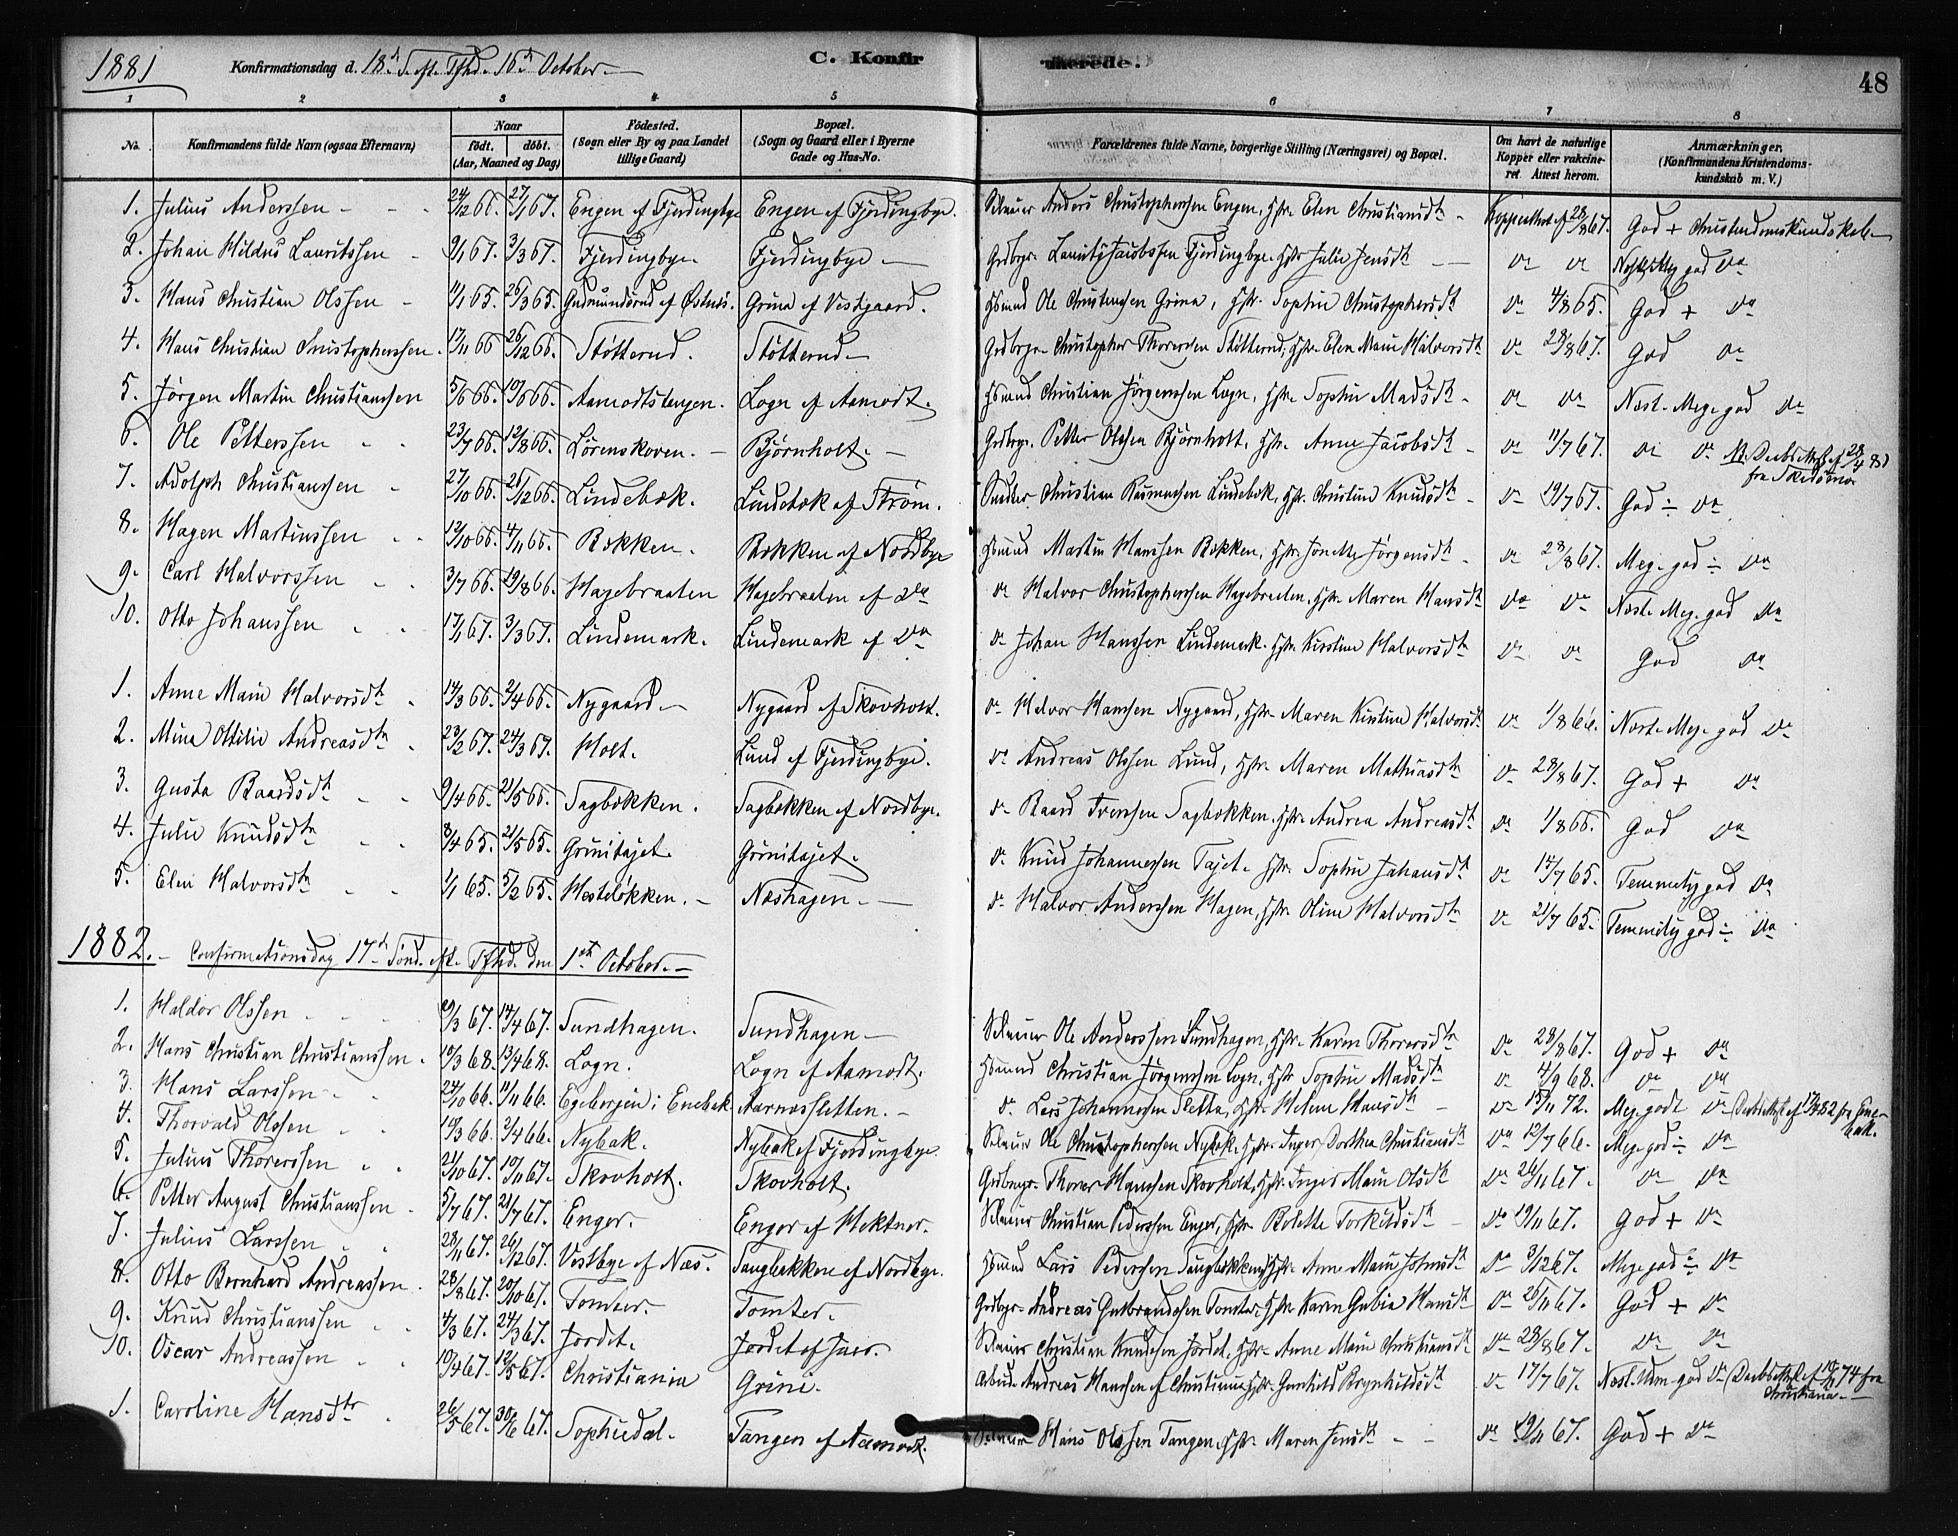 1881 Konfirmationsdag d. 18de S. eft. Tfhd. 16de October. C. Konfirmerede. 48
1 2 3 4 5 6 7 8
No. Konfirmandens fulde Navn (ogsaa Efternavn) Naar født. døbt. (Aar, Maaned og Dag) Fødested. (Sogn eller By og paa Landet tillige Gaard) Bopæl. (Sogn og Gaard eller i Byerne Gade og Hus-No. Forældrenes fulde Navne, borgerlige Stilling (Næringsvei) og Bopæl. Om havt de naturlige Kopper eller vakcineret. Attest herom. Anmærkninger. (Konfirmandens Kristendomskundskab m. V.)
1. Julius Anderssen 24/12 66. 27/1 67. Engen af Fjerdingbye Engen af Fjerdingbye. Selveier Anders Christophersen Engen, Hstr. Elen Christiansdtr Koppeattest af 28/8 67. God + Christendomskundskab
2. Johan Hildus Lauritssen 9/1 67. 3/3 67. Fjerdingbye. Fjerdingbye Grdbrgr. Lauritz Jacobssen Fjerdingbye. Hstr Julie Jensdtr Do Do god Do
3. Hans Christian Olssen 11/1 65. 26/3 65. Gudmundsrud af Østnæs. Grina af Vestgaard. Hsmnd Ole Christensen Grina, Hstr. Sophie Christophersdtr Do 4/8 65. God + Do
4. Hans Christian Christophersen. 17/11 66 26/12 66. Støtterud. Støtterud Grdbrgr. Christopher Thoresen Støtterud, Hstr. Elen Marie Halvorsdtr Do 28/8 67. God Do
5. Jørgen Martin Christianssen 5/5 66. 10/6 66. Aamodtstangen. Logn af Aamodt. Hsmnd Christian Jørgenssen Logn, Hstr. Sophie Madsdtr Do Do Næst. Meg. god Do
6. Ole Petterssen 23/7 66. 12/8 66. Lørenskoven. Bjørnholt. Grdbrgr. Petter Olssen Bjørnholt, Hstr. Anne Jacobsdtr Do 11/7 67. Do Do NB. Daabsattest af 28/4 81 fra Skedsmo
7. Adolph Christianssen 27/10 66. 26/12 66. Lindebæk. Lindebæk af Strøm. Christian Rasmussen Lindebæk, Hstr. Christine Knudsdtr Do 19/7 67. God ÷ Do
8. Hagen Martinssen 12/10 66. 4/11 66. Bækken. Bækken af Nordbye Hsmnd Martin Hanssen Bækken, Hstr. Jørgensdtr Do 28/8 67. Meg. god ÷ Do
9. Carl Halvorssen 3/7 66. 19/8 66. Hagebraaten Hagebraaten af Do Do Halvor Christophersen Hagebraaten, Hstr. Maren Hansdtr Do Do Næst. Meg. god Do
10. Otto Johanssen 17/1 67. 3/3 67. Lindemark. Lindemark af Do Do Johan Hanssen Lindemark. Hstr. Kirstine Halvorsdtr Do Do God Do
1. Anne Marie Halvorsdtr 14/3 66. 2/4 66. Nygaard Nygaard af Skovholt. Do Halvor Hanssen Nygaard, Hstr. Maren Kirstine Halvorsdtr Do 1/8 66. Næst. Meg. god Do
2. Mina Ottilie Andreasdtr 23/2 67. 24/3 67. Holt. Lund af Fjerdingbye. Do Andreas Olssen Lund, Hstr. Maren Mathiasdtr Do 28/8 67. God + Do
3. Gusta Baardsdtr 9/4 66. 21/5 66. Sagbækken. Sagbækken af Nordbye. Do Baard Iversen Sagbækken. Hstr. Andrea Andreasdtr Do 1/8 66. God Do
4. Julie Knudsdtr 8/4 65. 21/5 65. Grinitajet. Grinitajet. Do Knud Johannessen Tajet. Hstr. Sophie Johansdtr Do 14/7 65. Temmelig god Do
5. Elen Halvorsdtr 1/1 65. 5/2 65. Hesteløkken. Næshagen. Do Halvor Anderssen Hagen, Hstr. Oline Halvorsdtr Do 21/7 65. Temmelig god ÷ Do
1882. Confirmationsdag 17de Sønd. eft. Tfhd. den 1ste October.
1. Haldor Olssen 10/3 67. 14/4 67. Sundhagen. Sundhagen Selveier Ole Anderssen Sundhagen, Hstr. Karen Thorersdtr Do 28/8 67. God + Do
2. Hans Christian Christianssen. 10/3 68. 13/4 68. Logn. Logn af Aamodt. Hsmnd Christian Jørgenssen Logn, Hstr Sophie Madsdtr Do 4/9 68. Do Do
3. Hans Larssen 24/10 66. 11/11 66. Egebergeie i Enebak Aarnæssletten. Do. Lars Johannessen Sletta, Hstr. Helene Hansdtr Do 15/11 72. Meg. godt Do Daabsattest af 82 fra Enebak.
4. Thorvald Olssen 10/3 66. 2/4 66. Nybæk. Nybæk af Fjerdingbye Selveier Ole Christophersen Nybæk, Hstr. Inger Dorthea Christiansdtr Do 12/7 66. Meg. god ÷ Do
5. Julius Thorerssen 21/10 67. 10/11 67. Skovholt. Skovholt. Grdbrgr. Thorer Hanssen Skovholt, Hstr. Inger Marie Olsdtr Do 26/11 67. Do Do
6. Petter August Christianssen. 5/7 67. 21/7 67. Enger. Enger af Hektner. Selveier Christian Pederssen Enger, Hstr. Bolette Torkildsdtr Do 19/11 67. God + Do
7. Julius Larssen 28/11 67. 26/12 67. Vestbye af Næs. Saugbækken af Nordbye. Hsmnd Lars Pedersen Saugbækken, Hstr. Anne Marie Johnsdtr Do 3/12 67. Meg. god ÷ Do
8. Otto Bernhard Andreassen. 28/8 67. 20/10 67. Tomter. Tomter. Grdbrgr. Andreas Gulbrandsen Tomter, Hstr. Karen Gubia Hansdtr Do 25/11 67. God + Do
9. Knud Christianssen 4/3 67. 24/3 67. Jordet. Jordet af Jær. Selveier Christian Knudsen Jordet, Hstr. Anne Marie Christiansdtr Do 28/8 67. Do Do
10. Oscar Andreassen 10/4 67. 12/5 67. Christiania Grini. Arbmd. Andreas Hanssen af Christiania, Hstr. Gunhild Brynhildsdtr Do 17/7 67. Næst. Udm. god Do Daabsattest af 74 fra Christiania.
1. Caroline Hansdtr 26/5 67. 30/6 67. Sophiedal. Tangen af Aamodt. Selveier Hans Olssen Tangen, Hstr. Maren Jensdtr Do 19/11 67. God + Do